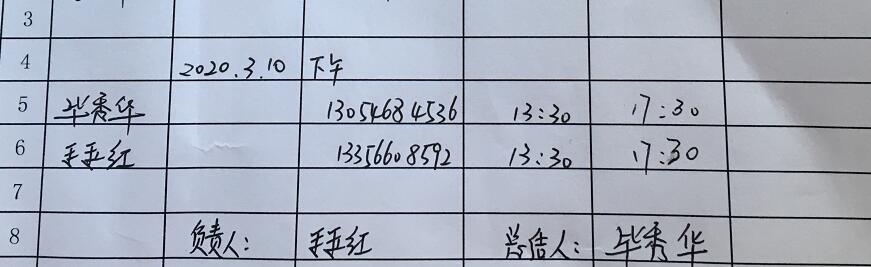 3
4 2020.3.10 下午
5 毕秀华 13054684536 13:30 17:30
6 红 13356608592 13:30 17:30
7
8 负责人: 红 人: 毕秀华